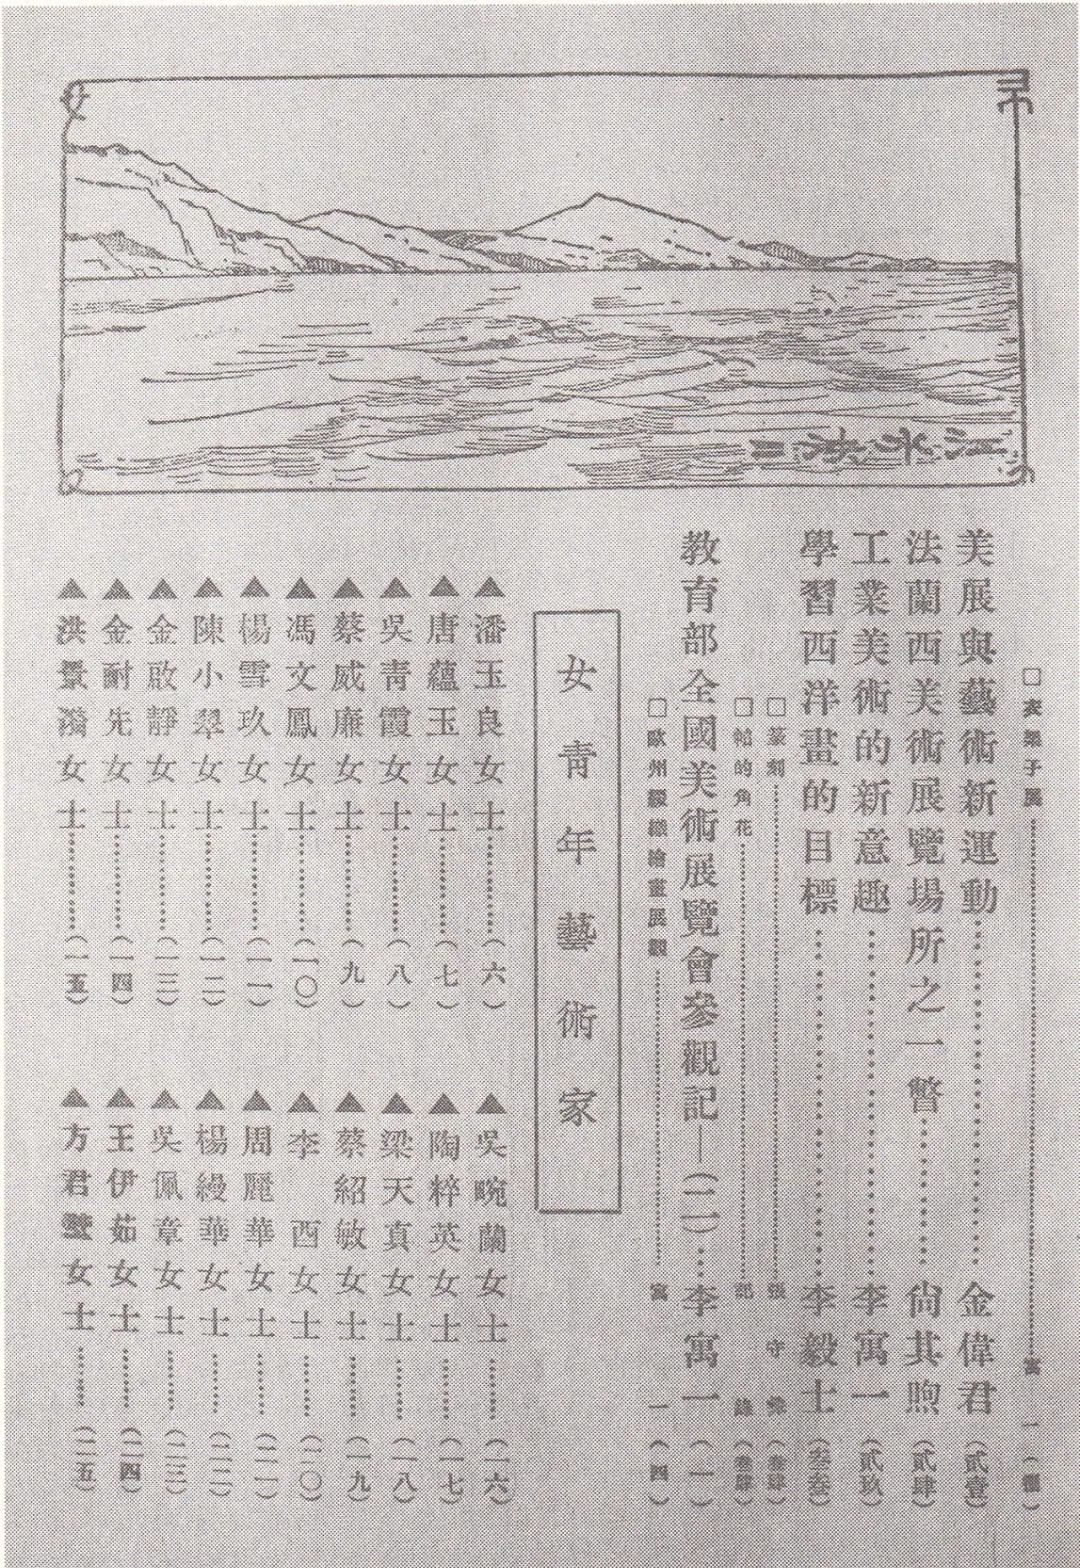 江水泱二
子展………寓一
美展與藝術新運動………金偉君(貳壹)
法蘭西美術展覽場所之一瞥………尙其煦(貳肆)
工業美術的新意趣………李寓一(貳玖)
學習西洋畫的目標………李毅士(叁叁)
□篆刻………張守(叁肆)
□帕的角花………記錄(叁肆)
教育部全國美術展覽會參觀記—(二)…李寓一(一)
□歐州綴織繪畫展觀………寓一(四)
女靑年藝術家
▲潘玉良女士………(六)
▲唐蘊玉女士………(七)
▲吳靑霞女士………(八)
▲蔡威廉女士………(九)
▲馮文鳳女士………(一〇)
▲楊雪玖女士………(一一)
▲陳小翠女士………(一二)
▲金啟靜女士………(一三)
▲金耐先女士………(一四)
▲洪景漪女士………(一五)
▲吳畹蘭女士………(一六)
▲陶粹英女士………(一七)
▲梁天真女士………(一八)
▲蔡紹敏女士………(一九)
▲李 西女士………(二〇)
▲周麗華女士………(二一)
▲楊縵華女士………(二二)
▲吳佩章女士………(二三)
▲王伊茹女士………(二四)
▲方君璧女士………(二五)